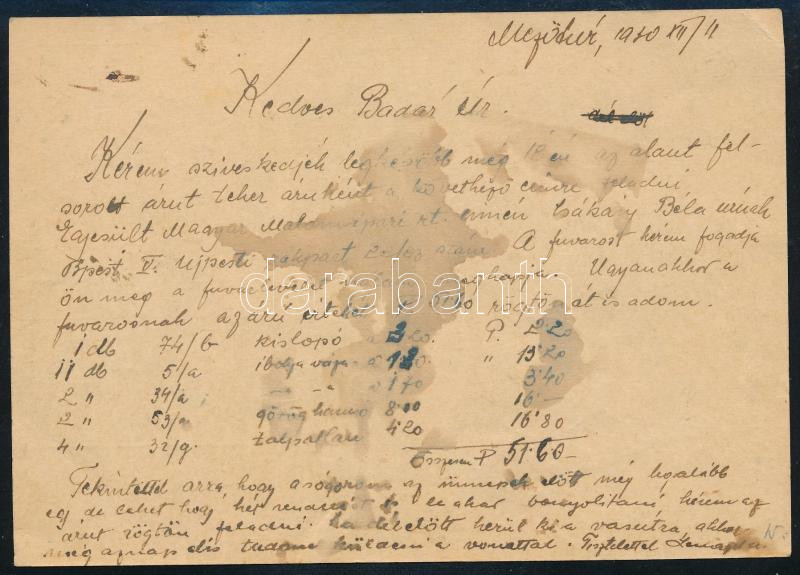 Mezőtúr, 1930 XII/11
Kedves Badár Úr.
Kérem sziveskedjék legkésőbb még 12 én az alant fel-
sorolt árut teher áruként a következő címre feladni
Egyesült Magyar Malomipari rt. Csákány Béla úrnak
Bpest V. Ujpesti rakpart A fuvarost kérem fogadja
ön meg a fuvarlevelet Ugyanakkor a
fuvarosnak az áru rögtön át is adom.
1 db 74/b kislopó á 2.20 P. 2.20
11 db 5/a ibolya váza á 1.20 " 13.20
2 " 34/a -"- á 1.70 3.40
2 " 53/a görög kancsó 8.00 16.-
4 " 32/g. 4.20 16.80
Összesen P 51.60-
Tekintettel arra, hogy a sógorom az ünnepek előtt még legalább
lehet hogy két rendelést is le akar bonyolitani kérem az
árut rögtön feladni. ha délelőtt kerül ki a vasútra, akkor
még aznap dél tudom küldeni a vonattal. Tisztelettel
darabanth